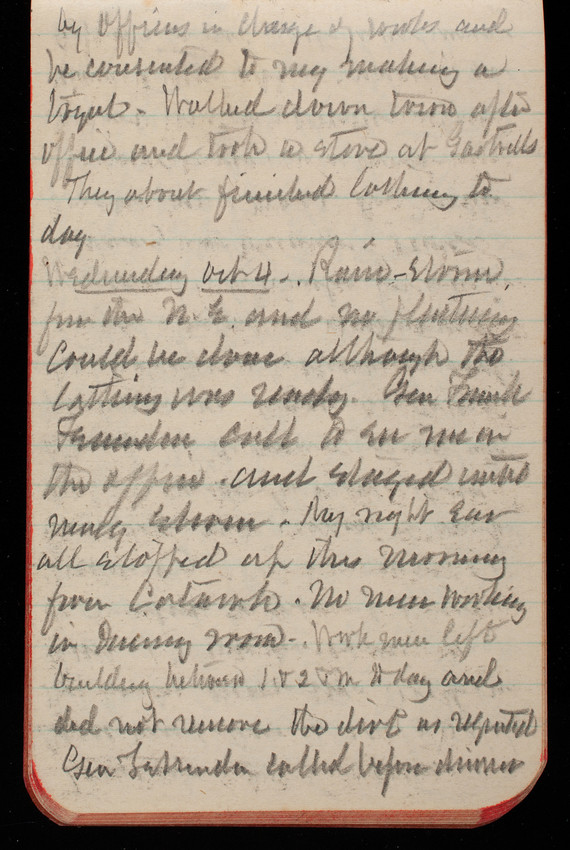 by officers in charge of works and
he consented to my making a
Walked down town after
office and took a stove at
They about finished lathing to
day
Wednesday Oct 4. Rain-Storm
from the N.E. and no plastering
could be done although the
lathing was ready. Gen
call to see me in
the office. and stayed until
nearly eleven. My right ear
all stopped up this morning
from Catarrh. No men working
in Dining room. Work men left
building between 1 & 2 P m to day and
did not remove the dirt as requested
Gen called before dinner